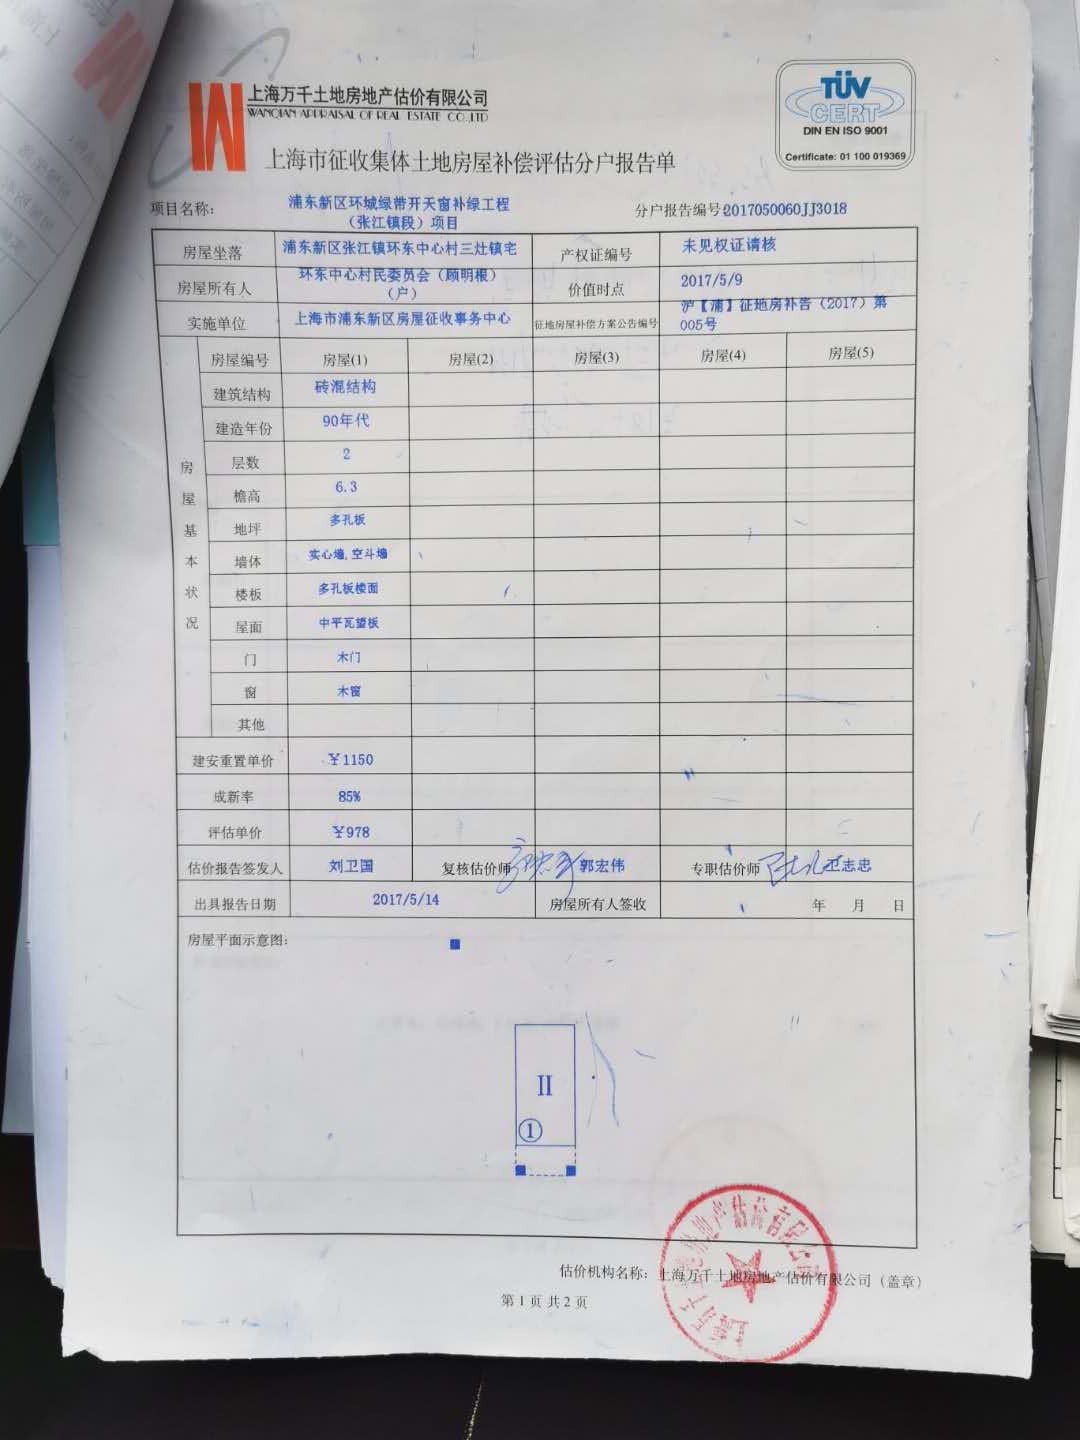 上海万千土地房地产估价有限公司
WANQIAN APPRAISAL OF REAL ESTATE CO.,LTD
TÜV
CERT
DIN EN ISO 9001
Certificate: 01 100 019369
上海市征收集体土地房屋补偿评估分户报告单
项目名称: 浦东新区环城绿带开天窗补绿工程
(张江镇段) 项目
分户报告编号:2017050060JJ3018
房屋坐落 浦东新区张江镇环东中心村三灶镇宅 产权证编号 未见权证请核
房屋所有人 环东中心村民委员会 (顾明根)
(户) 价值时点 2017/5/9
实施单位 上海市浦东新区房屋征收事务中心 征地房屋补偿方案公告编号 沪【浦】征地房补告 (2017) 第
005号
房屋基本状况
房屋编号 房屋(1) 房屋(2) 房屋(3) 房屋(4) 房屋(5)
建筑结构 砖混结构
建造年份 90年代
层数 2
檐高 6.3
地坪 多孔板
墙体 实心墙,空斗墙
楼板 多孔板楼面
屋面 中平瓦望板
门 木门
窗 木窗
其他
建安重置单价 ¥1150
成新率 85%
评估单价 ¥978
估价报告签发人 刘卫国 复核估价师 郭宏伟 专职估价师 卫志忠
出具报告日期 2017/5/14 房屋所有人签收 年 月 日
房屋平面示意图:
II
①
估价机构名称: 上海万千土地房地产估价有限公司 (盖章)
第 1 页 共 2 页